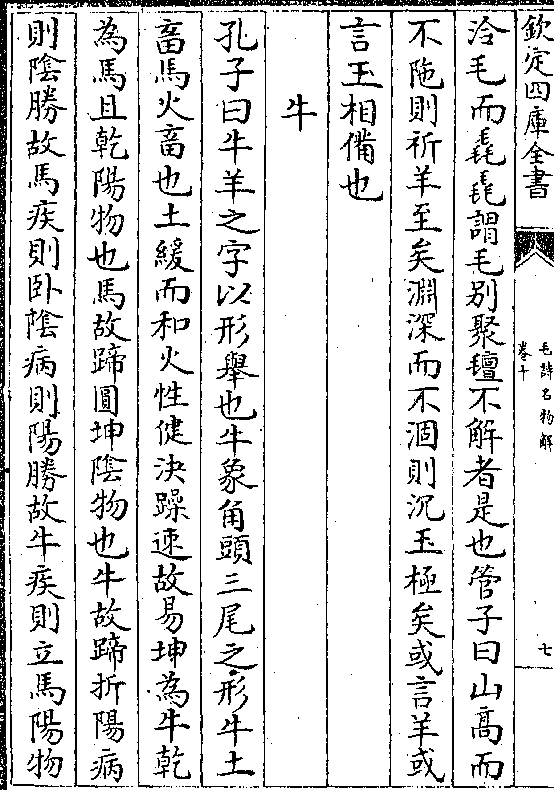 欽定四庫全書
毛詩名物解
卷十
七
泠毛而毳毳謂毛别聚氊不解者是也管子曰山髙而
不陁則祈羊至矣淵深而不涸則沉玉極矣或言羊或
言玉相備也
牛
孔子曰牛羊之字以形舉也牛象角頭三尾之形牛土
畜馬火畜也土緩而和火性健決躁速故易坤為牛乾
為馬且乾陽物也馬故蹄圓坤陰物也牛故蹄折陽病
則陰勝故馬疾則卧陰病則陽勝故牛疾則立馬陽物